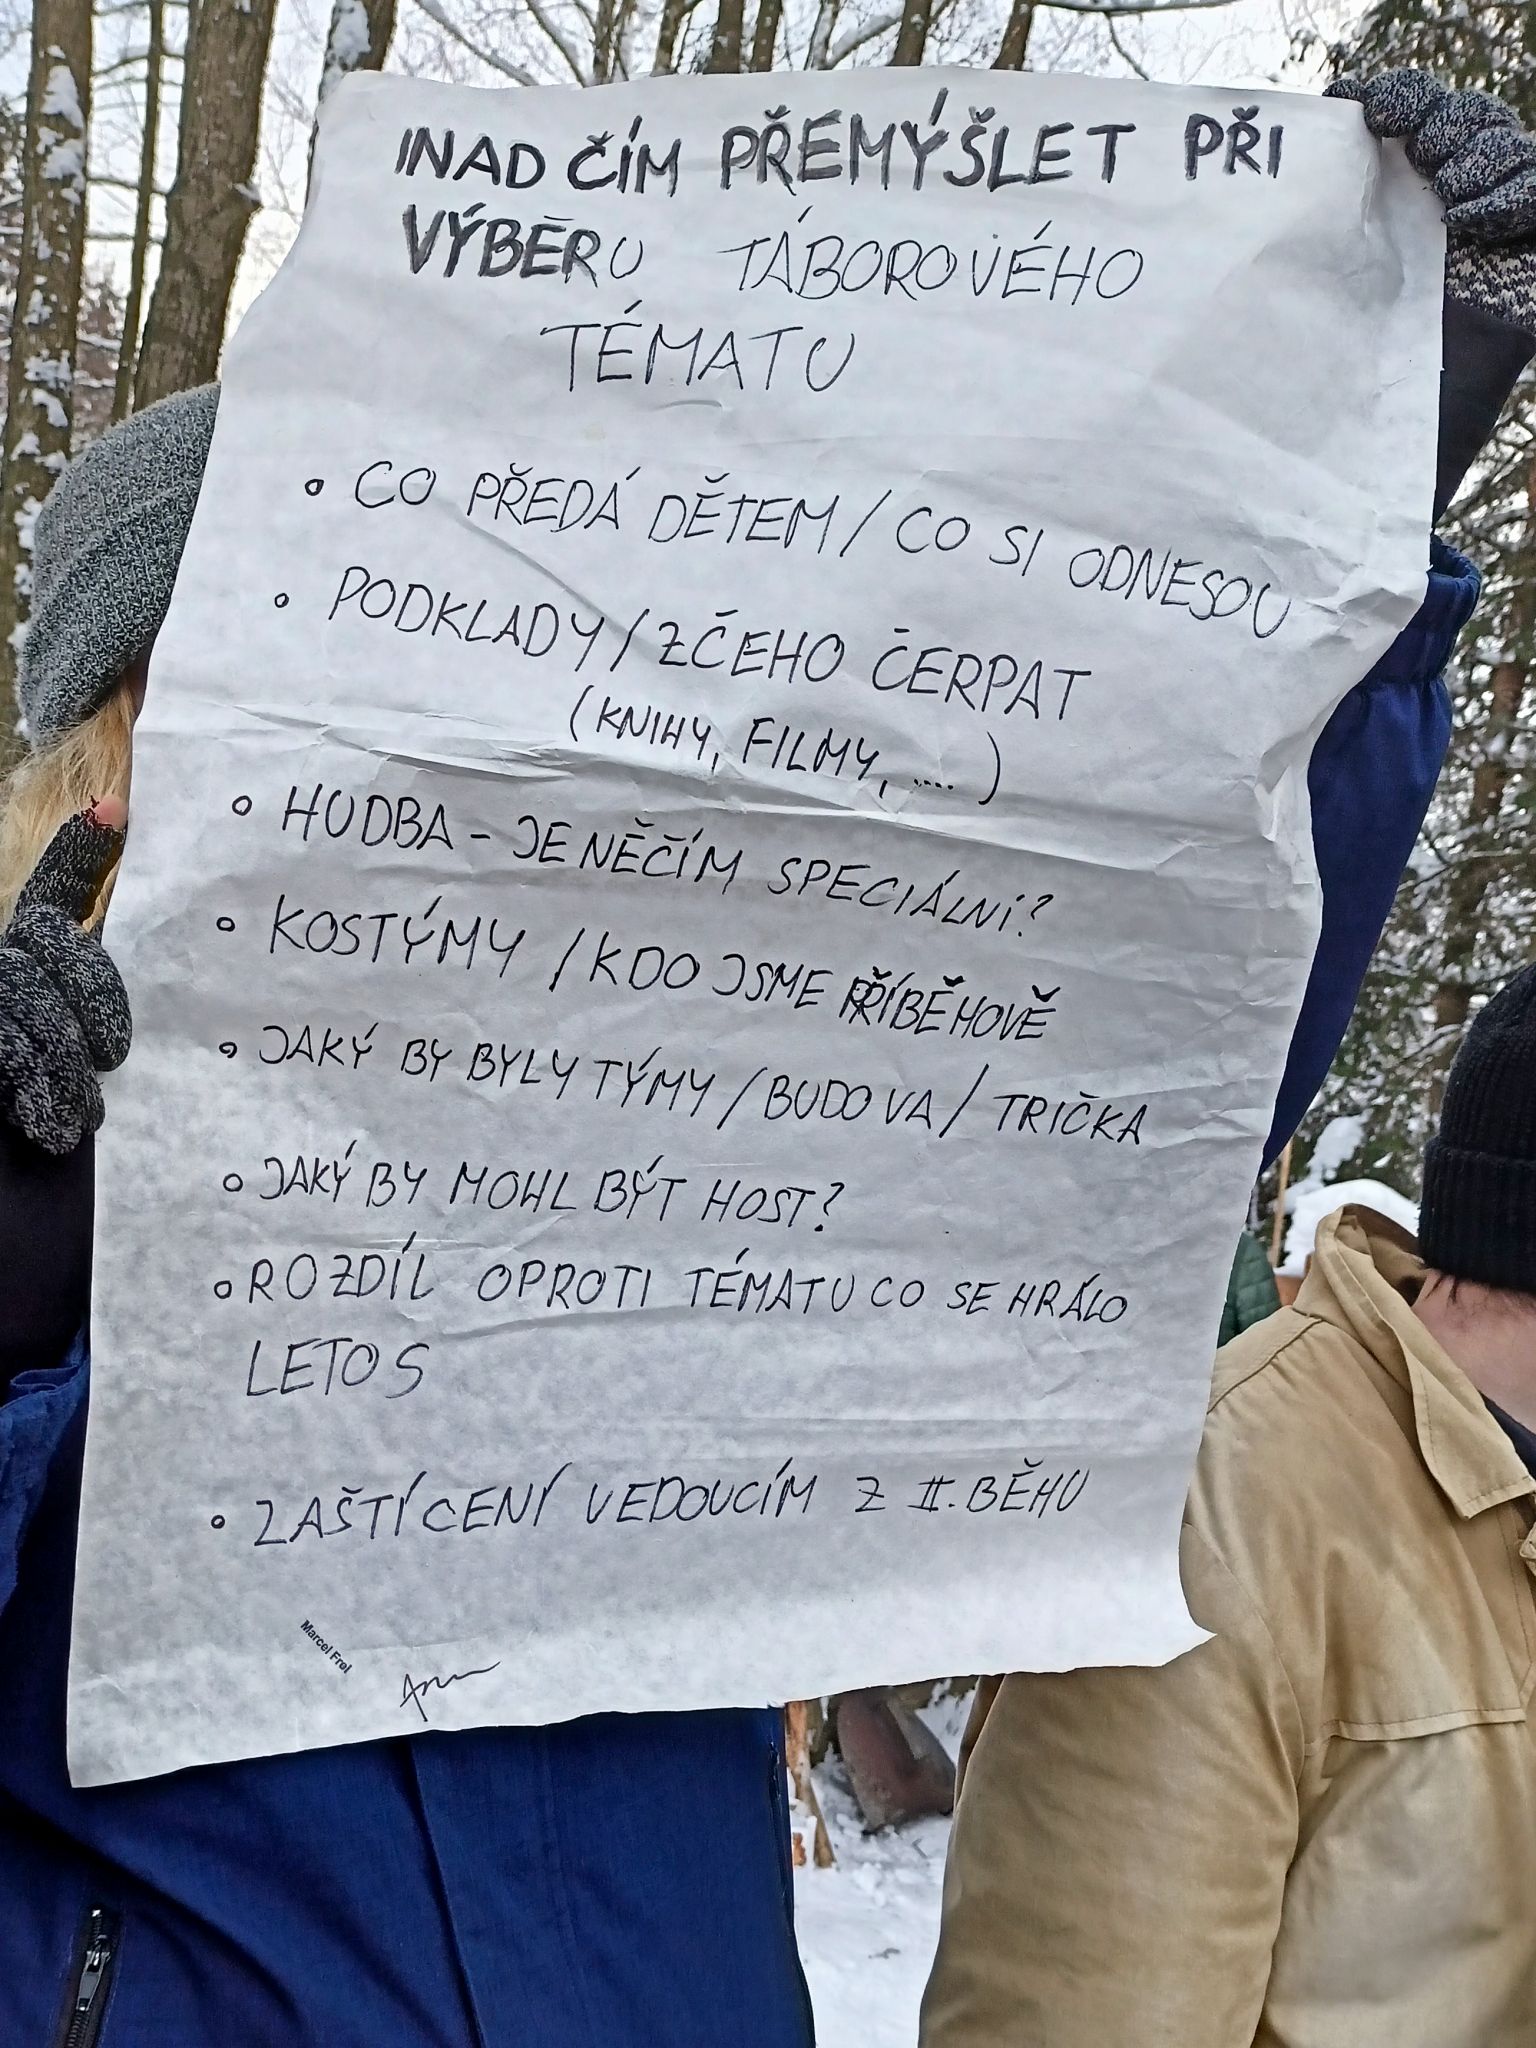 INAD ČÍM PŘEMÝŠLET PŘI
VÝBĚRU TÁBOROVÉHO
TÉMATU
• CO PŘEDÁ DĚTEM / CO SI ODNESOU
• PODKLADY / ZČEHO ČERPAT
(KNIHY, FILMY, ....)
• HUDBA - JE NĚČÍM SPECIÁLNÍ?
• KOSTÝMY / KDO JSME PŘÍBĚHOVĚ
• JAKÝ BY BYLY TÝMY / BUDOVA / TRIČKA
• JAKÝ BY MOHL BÝT HOST?
• ROZDÍL OPROTI TÉMATU CO SE HRÁLO
LETOS
• ZAŠTÍCENÍ VEDOUCÍM Z II. BĚHU
Marcel Frel